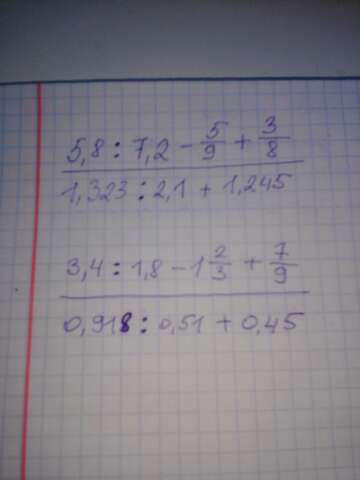 5,8 : 7,2 - 5/9 + 3/8
1,323 : 2,1 + 1,245
3,4 : 1,8 - 1 2/3 + 7/9
0,918 : 0,51 + 0,45